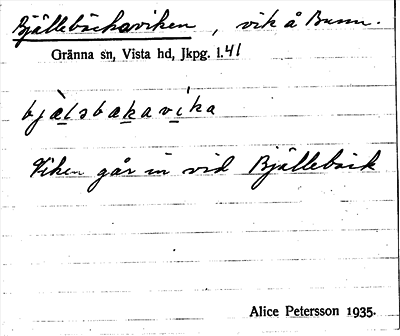 Bjällebäckaviken, vik å Bunn.
Gränna sn, Vista hd, Jkpg. l. 41
bjälsbakavika
Viken går in vid Bjällebäck
Alice Petersson 1935.